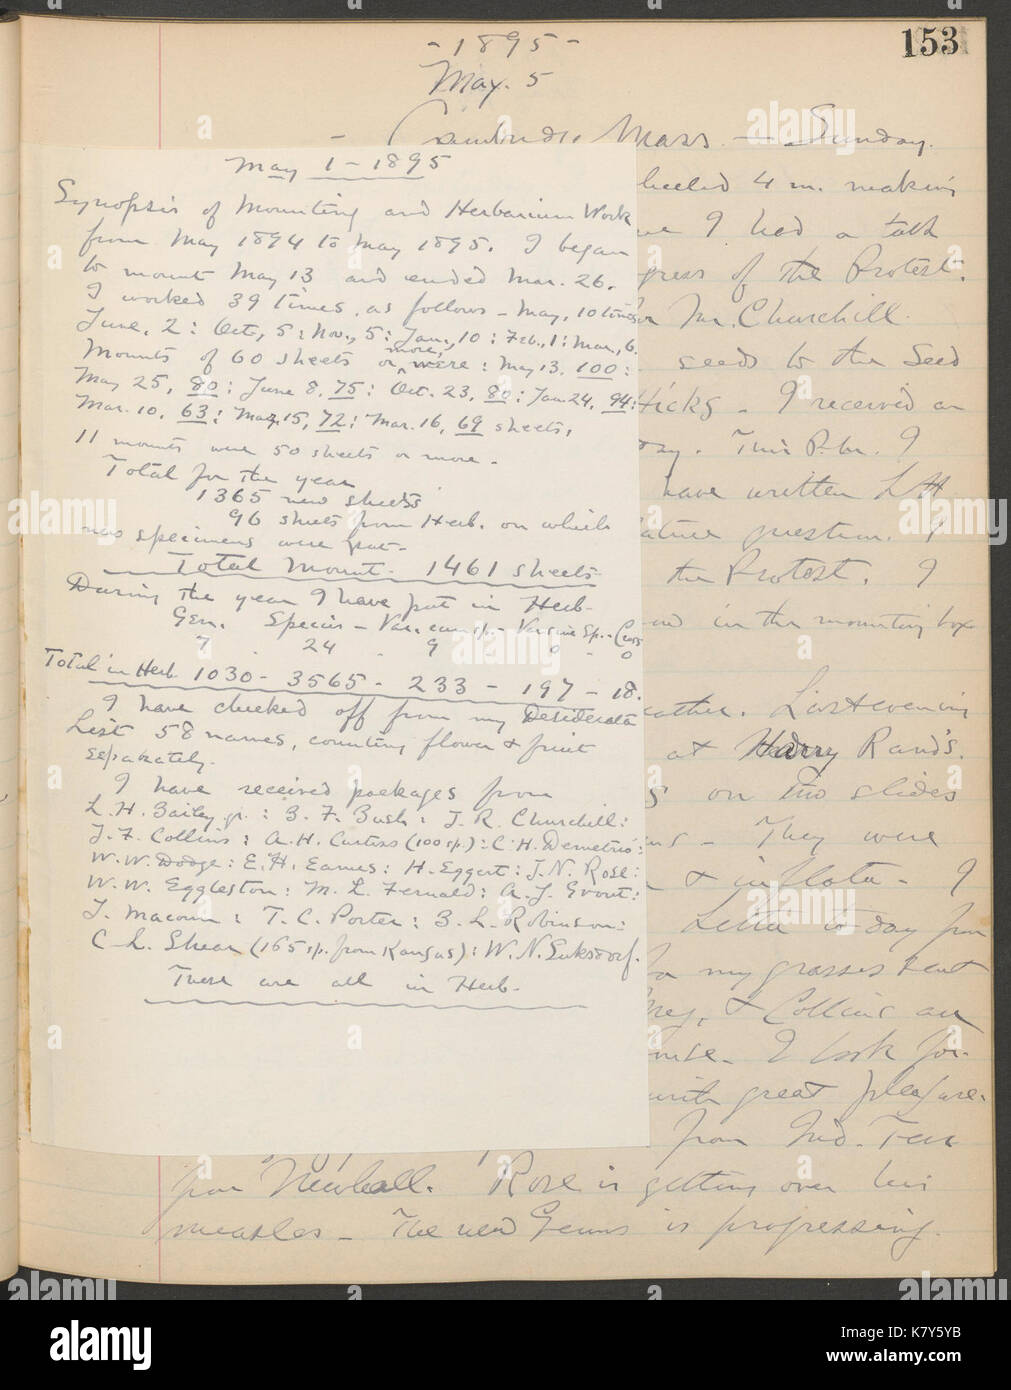 153
- 1895 -
May. 5
- Cambridge Mass - Sunday.
May 1 - 1895
Synopsis of Mounting and Herbarium Work
from May 1894 to May 1895. I began
to mount May 13 and ended Mar. 26.
I worked 39 times, as follows - May, 10 times
June, 2: Oct, 5: Nov., 5: Jan., 10: Feb., 1: Mar., 6.
Mounts of 60 sheets or more, were: May 13, 100:
May 25, 80: June 8, 75: Oct. 23, 80: Jan 24, 94:
Mar. 10, 63: Mar 15, 72: Mar. 16, 69 sheets,
11 mounts were 50 sheets or more -
Total for the year
1365 new sheets
96 sheets from Herb. on which
new specimens were put -
Total Mount - 1461 sheets
During the year I have put in Herb -
Gen. Species - Var. cum sp. - Var sine Sp. - Cross
7 - 24 - 9 - 0 - 0
Total in Herb 1030 - 3565 - 233 - 197 - 18.
I have checked off from my Desiderata
List 58 names, counting flower & fruit
separately.
I have received packages from
L. H. Bailey jr.: B. F. Bush: J. R. Churchill:
J. F. Collins: A. H. Curtiss (100 sp.): C. H. Demetrio:
W. W. Dodge: E. H. Eames: H. Eggert: J. N. Rose:
W. W. Eggleston: M. L. Fernald: A. J. Grout:
J. Macoun: T. C. Porter: B. L. Robinson:
C. L. Shear (165 sp. from Kansas): W. N. Suksdorf.
These are all in Herb -
heeled 4 m. making
I had a talk
gress of the Protest.
Mr. Churchill.
seeds to the Seed
Hicks - I received an
ay. This P.M. I
have written L H
ature question. I
the Protest. I
in the mounting box
eather. Last evening
at Harry Rand's.
on two slides
- They were
& inflota - I
Letter to day from
for my grasses sent
& Collins are
I look for-
with great pleasure.
from Ind. Terr
from Newhall. Rose is getting over his
measles - The new Genus is progressing.
alamy stock photo
alamy
Image ID: K7Y5YB
www.alamy.com